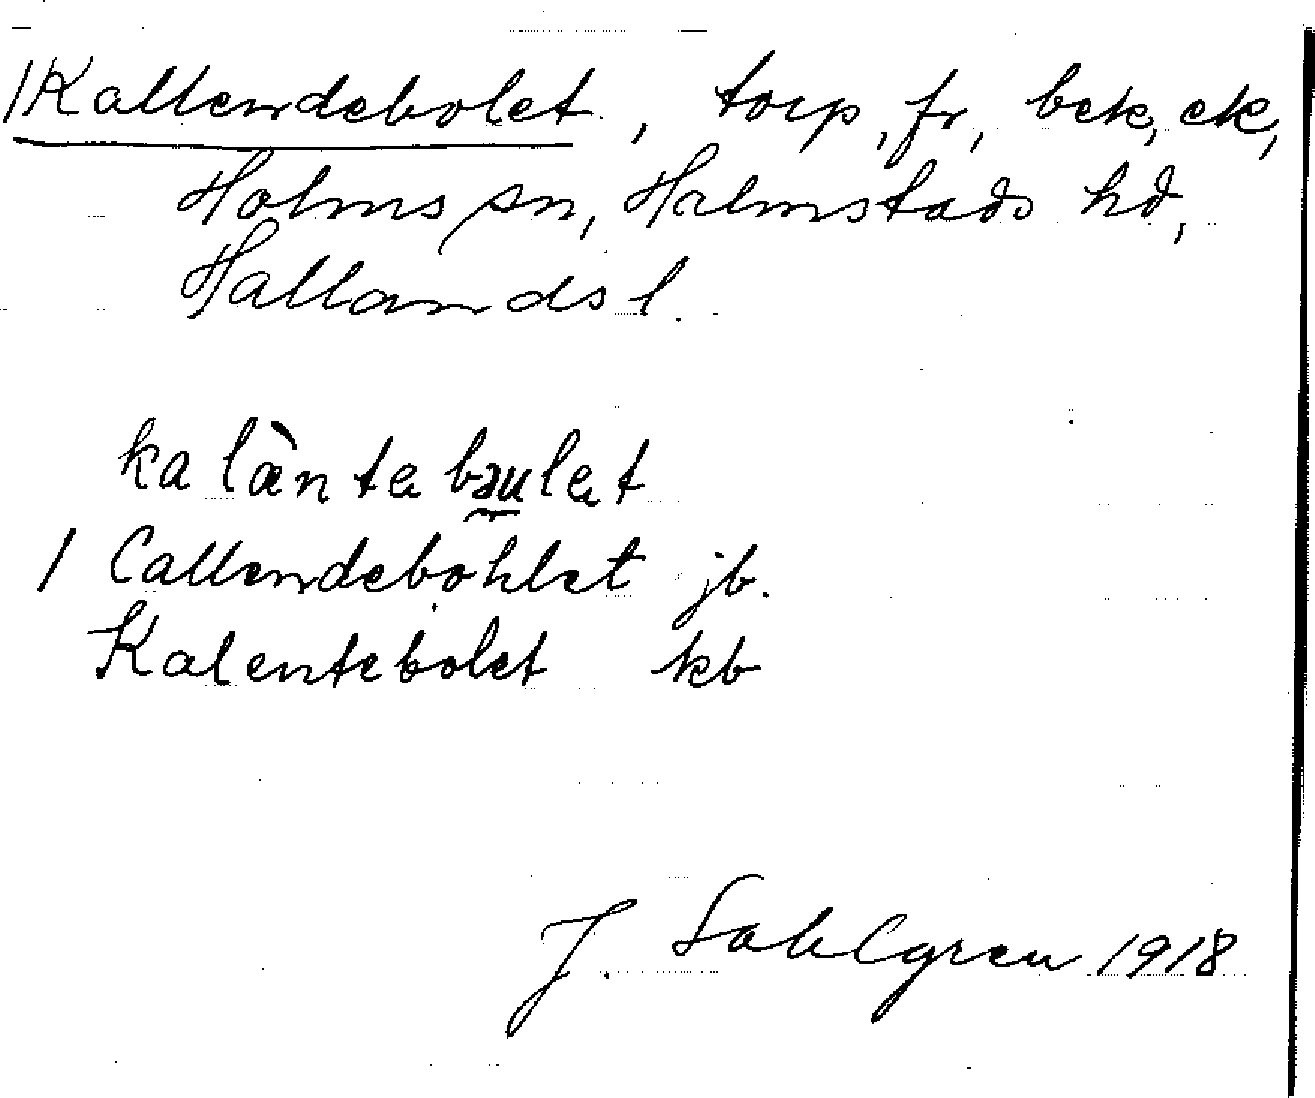 /Kallendebolet, torp, fr, bek, ek,
Holms sn, Halmstads hd,
Hallands l.
kalàntabaulat
/ Callendebohlet jb.
Kalentebolet kb
J. Sahlgren 1918